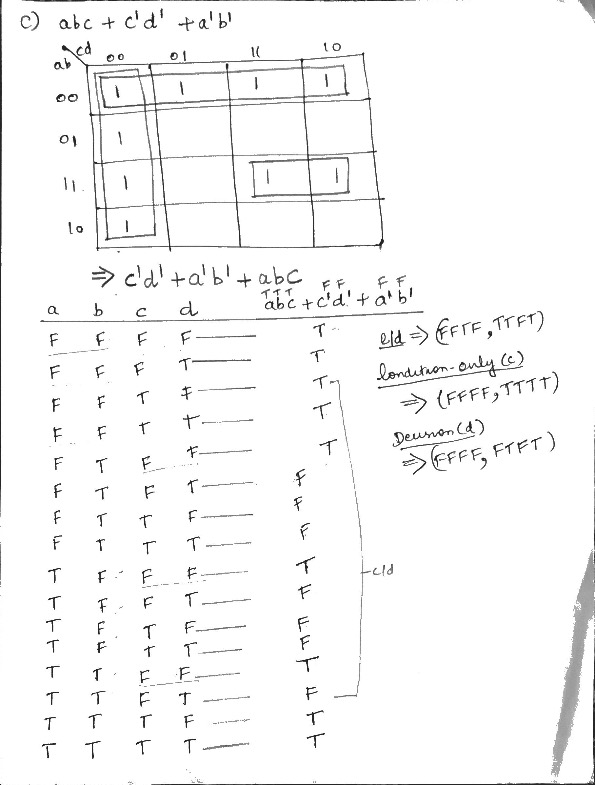 c) abc + c'd' + a'b'
cd
ab 00 01 11 10
00 1 1 1 1
01 1
11 1 1 1
10 1
⇒ c'd' + a'b' + abc
T T T F F F F
a b c d abc + c'd' + a'b'
F F F F T
F F F T T
F F T F T
F F T T T
F T F F T
F T F T F
F T T F F
F T T T F
T F F F T
T F F T F
T F T F F
T F T T F
T T F F T
T T F T F
T T T F T
T T T T T
c/d
c/d ⇒ (FFTF, TTFT)
Condition-only (c)
⇒ (FFFF, TTTT)
Decision (d)
⇒ (FFFF, FTFT)